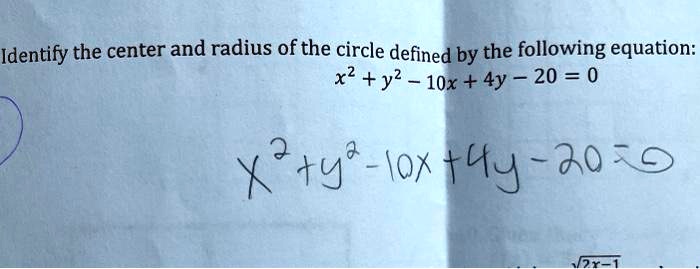 Identify the center and radius of the circle defined by the following equation:
x² + y² − 10x + 4y − 20 = 0
x²+y²-10x+4y-20=0
√2x−1